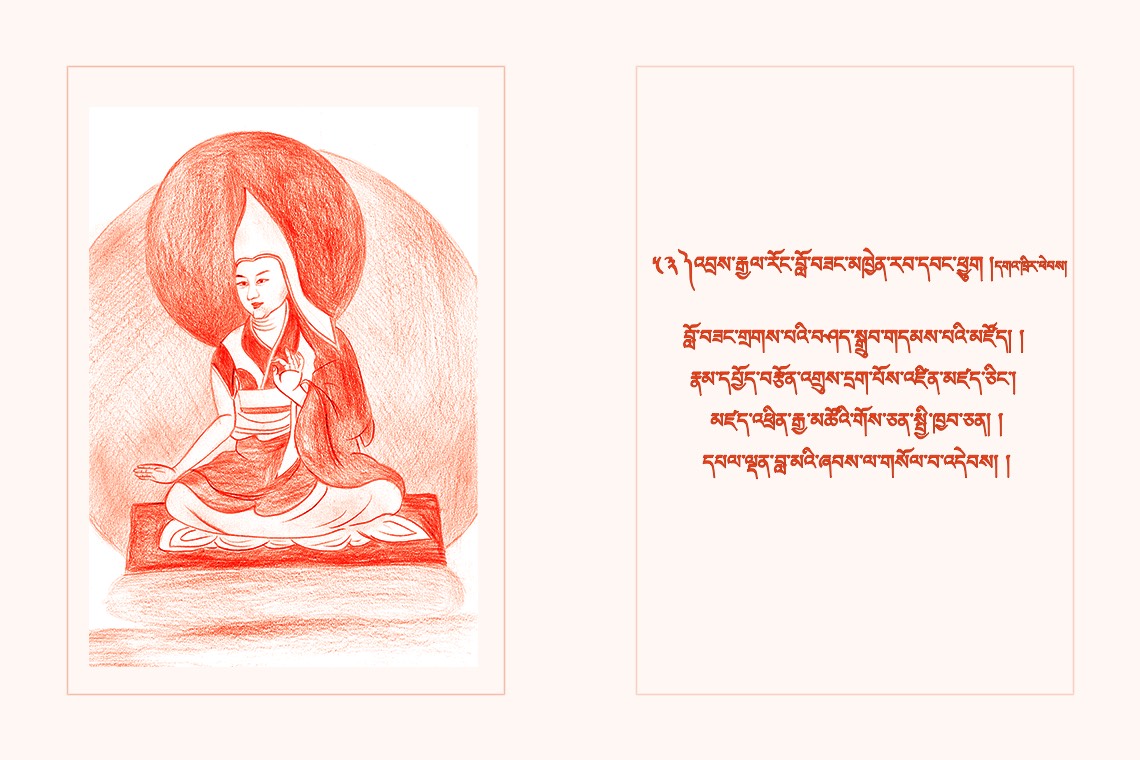 ༥༣ ༽འབྲས་རྒྱལ་རོང་བློ་བཟང་མཁྱེན་རབ་དབང་ཕྱུག །དགའ་ཁྲིར་ཕེབས།
བློ་བཟང་གྲགས་པའི་བཤད་སྒྲུབ་གདམས་པའི་མཛོད། །
རྣམ་དཔྱོད་བརྩོན་འགྲུས་དྲག་པོས་འཛིན་མཛད་ཅིང་།
མཛད་འཕྲིན་རྒྱ་མཚོའི་གོས་ཅན་སྤྱི་ཁྱབ་ཅན། །
དཔལ་ལྡན་བླ་མའི་ཞབས་ལ་གསོལ་བ་འདེབས། །